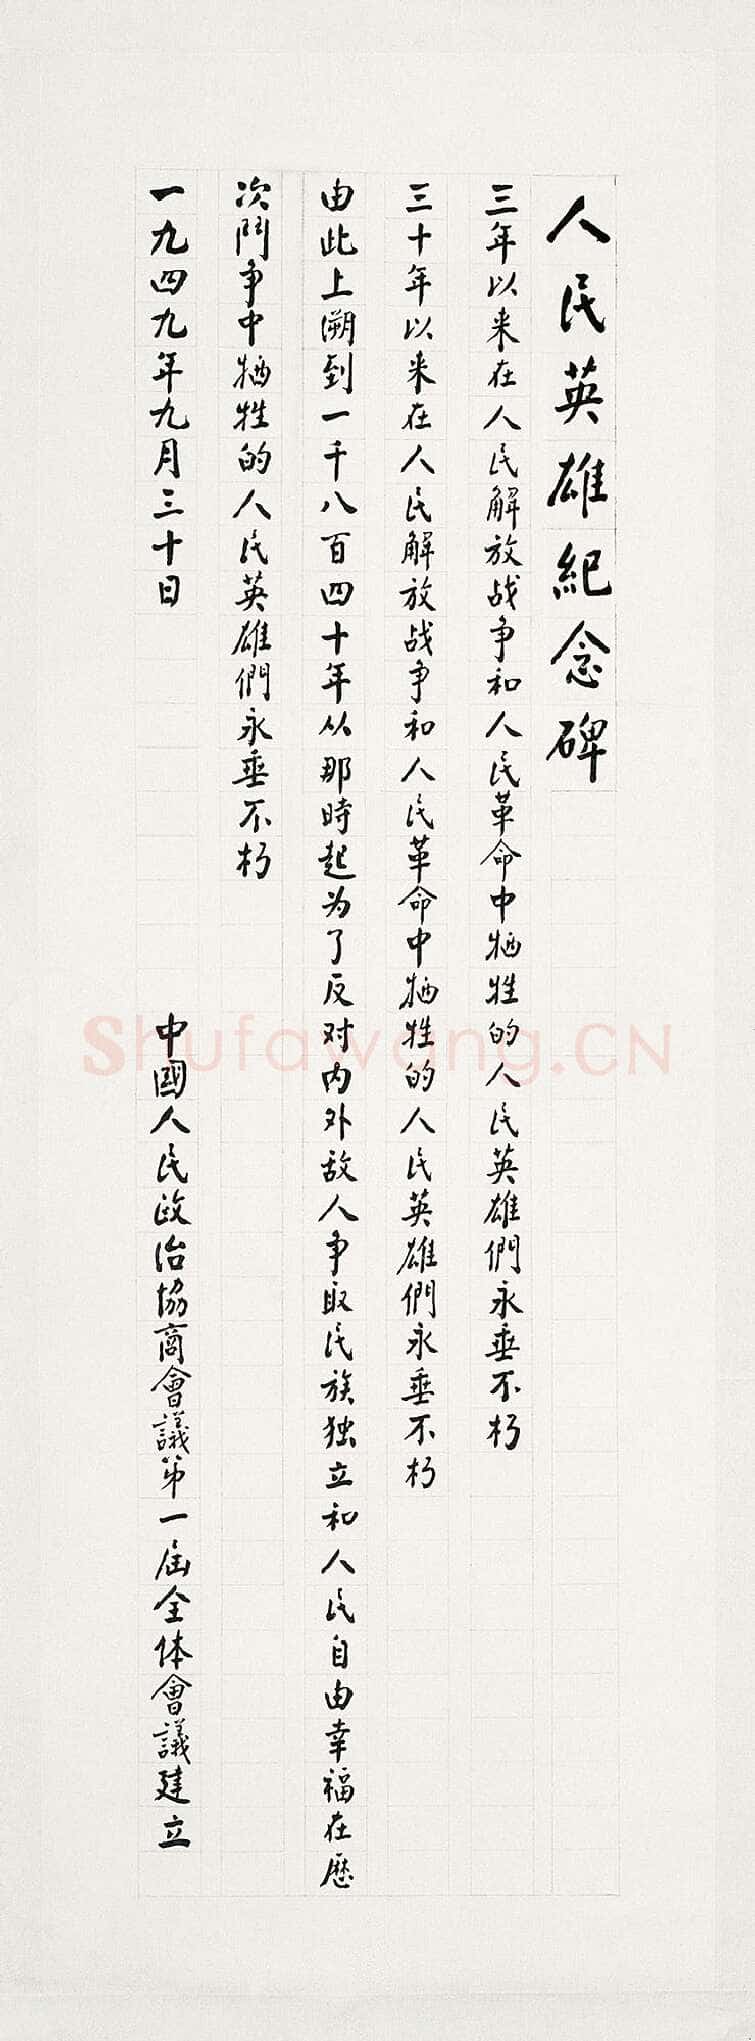 人民英雄紀念碑
三年以来在人民解放战争和人民革命中牺牲的人民英雄們永垂不朽
三十年以来在人民解放战争和人民革命中牺牲的人民英雄們永垂不朽
由此上溯到一千八百四十年从那時起为了反对内外敌人争取民族独立和人民自由幸福在歷
次鬥争中牺牲的人民英雄們永垂不朽
一九四九年九月三十日 中國人民政治協商會議第一届全体會議建立
Shufawang.CN